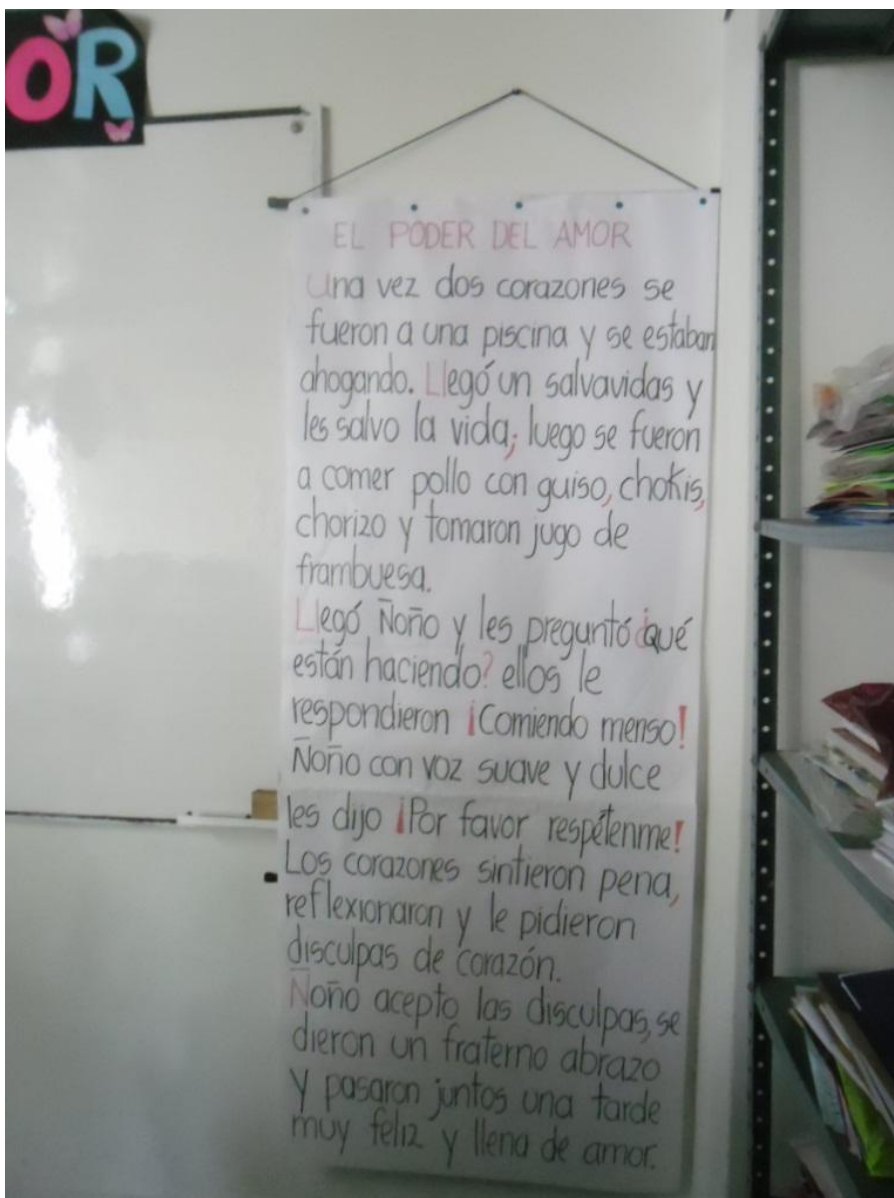 OR
EL PODER DEL AMOR
Una vez dos corazones se
fueron a una piscina y se estaban
ahogando. Llegó un salvavidas y
les salvo la vida; luego se fueron
a comer pollo con guiso, chokis,
chorizo y tomaron jugo de
frambuesa.
Llegó Ñoño y les preguntó ¿qué
están haciendo? ellos le
respondieron ¡Comiendo menso!
Ñoño con voz suave y dulce
les dijo ¡Por favor respétenme!
Los corazones sintieron pena,
reflexionaron y le pidieron
disculpas de corazón.
Ñoño acepto las disculpas, se
dieron un fraterno abrazo
y pasaron juntos una tarde
muy feliz y llena de amor.